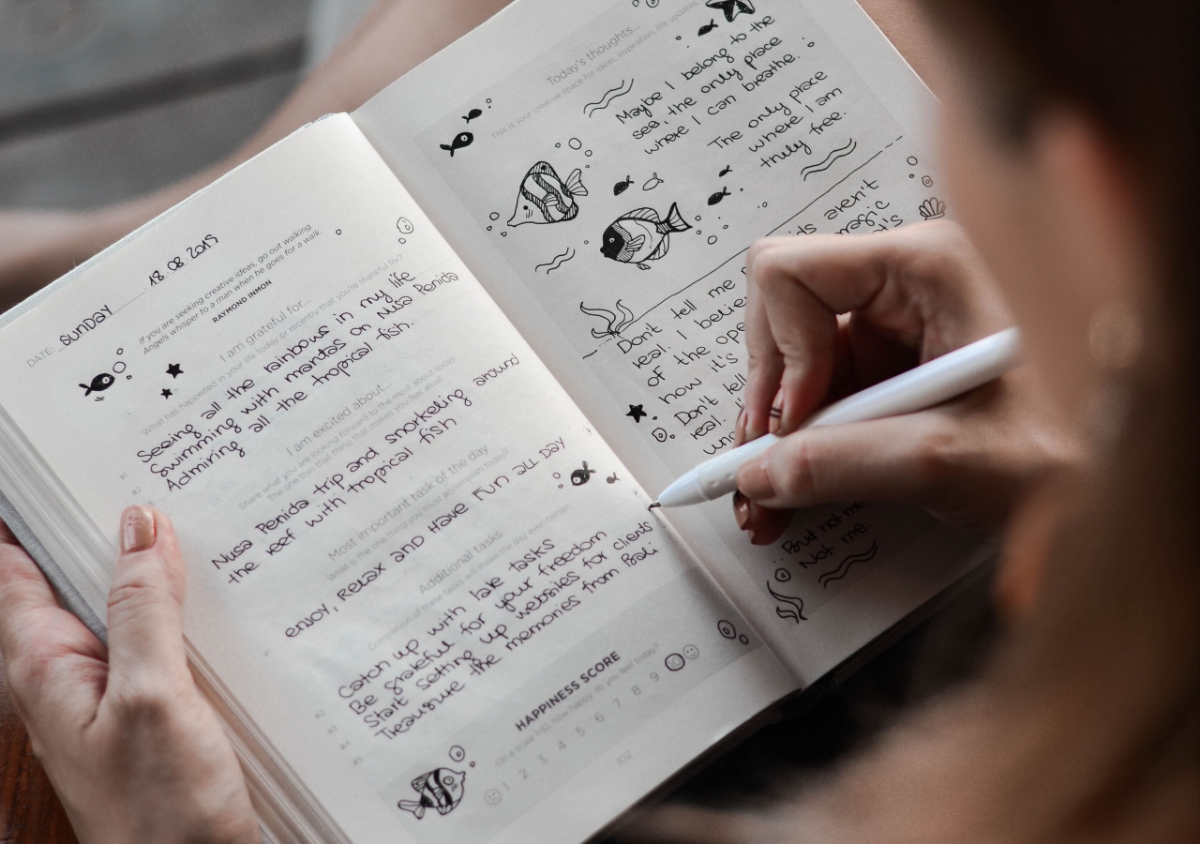 DATE: SUNDAY 18.08.2019
If you are seeking creative ideas, go out walking.
Angels whisper to a man when he goes for a walk.
RAYMOND INMON
I am grateful for...
What has happened in your life today or recently that you're thankful for?
Seeing all the rainbows in my life
Swimming with mantas on Nusa Penida
Admiring all the tropical fish.
I am excited about...
Share what you are looking forward to the most about today.
The one thing that makes you feel alive
Nusa Penida trip and snorkeling around
the reef with tropical fish
Most important task of the day
What is the one thing you must accomplish today?
ENJOY, RELAX AND HAVE FUN ALL DAY
Additional tasks
Completion of these tasks will make the day even better
#2 Catch up with late tasks
Be grateful for your freedom
#3 Start setting up websites for clients
#4 Treausure the memories from Bali
HAPPINESS SCORE
On a scale 1-10, how happy do you feel today?
1 2 3 4 5 6 7 8 9
102
Today's thoughts...
This is your creative space for ideas, inspiration, life updates
Maybe I belong to the
sea, the only place
where I can breathe.
The only place
where I am
truly free.
aren't
magic
Don't tell me
real. I believe
of the
how it's
Don't tell
real.
But not me.
Not me.